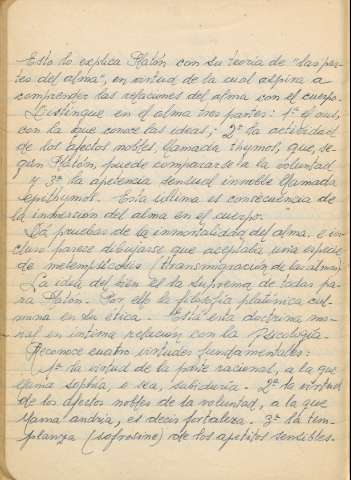 Esto lo explica Platón con su teoría de "las par-
tes del alma", en virtud de la cual aspira a
comprender las relaciones del alma con el cuerpo.
Distingue en el alma tres partes: 1ª el nus,
con la que conoce las ideas; 2ª la actividad
de los afectos nobles llamada thymos, que, se-
gún Platón, puede compararse a la voluntad
y 3ª la apetencia sensual innoble llamada
epithymos. Esta última es consecuencia de
la inmersión del alma en el cuerpo.
Da pruebas de la inmortalidad del alma e in-
cluso parece dibujarse que aceptaba una especie
de metempsicosis (transmigración de las almas).
La idea del bien es la suprema de todas pa-
ra Platón. Por ello la filosofía platónica cul-
mina en su ética. Está esta doctrina mo-
ral en íntima relación con la Psicología.
Reconoce cuatro virtudes fundamentales:
1ª la virtud de la parte racional, a la que
llama sophia, o sea, sabiduría. 2ª la virtud
de los afectos nobles de la voluntad, a la que
llama andria, es decir fortaleza. 3ª la tem-
planza (sofrosine) de los apetitos sensibles.